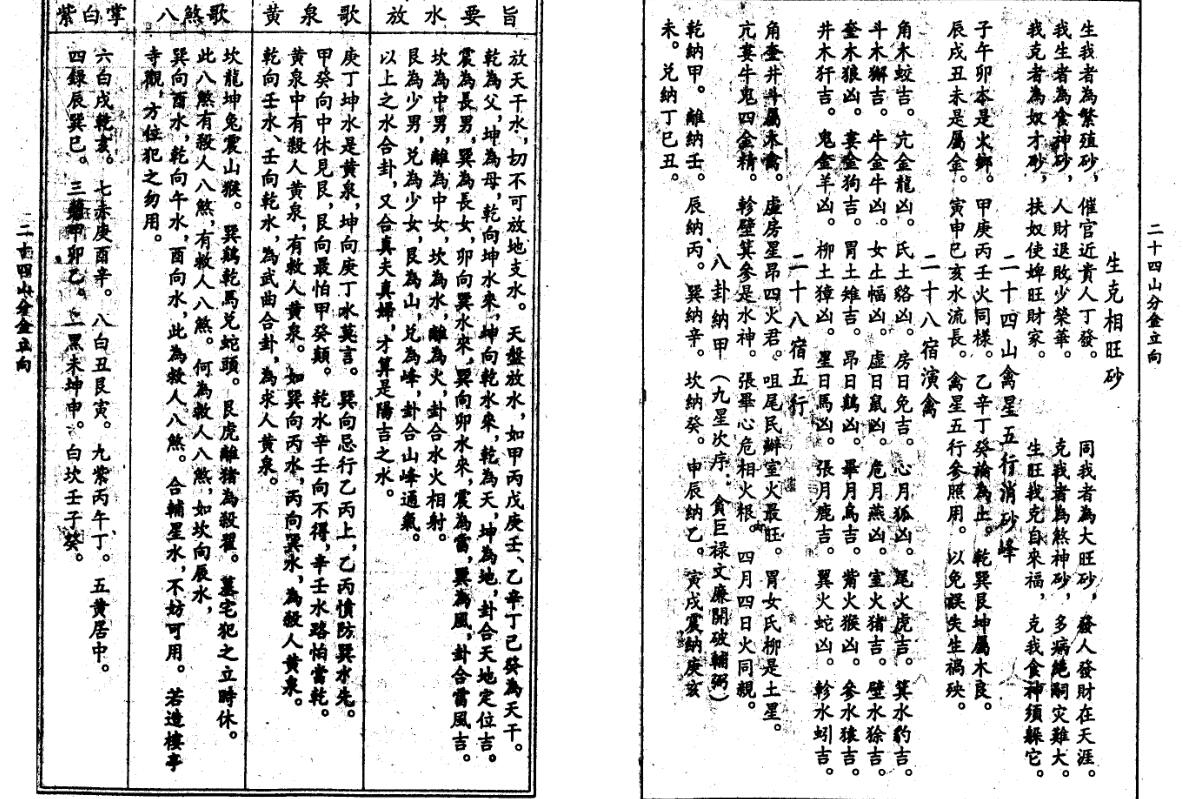 二十四山分金立向
生克相旺砂
生我者為繁殖砂，催官近貴人丁發。　同我者為大旺砂，發人發財在天涯。
我生者為食神砂，人財退敗少榮華。　克我者為煞神砂，多病絕嗣灾難大。
我克者為奴才砂，扶奴使婢旺財家。　生旺我克自來福，克我食神須躲它。
二十四山禽星五行消砂峰
子午卯本是火鄉。甲庚丙壬火同樣。乙辛丁癸論為土。乾巽艮坤屬木良。
辰戌丑未是屬金。寅申巳亥水流長。禽星五行參照用。以免誤失生禍殃。
二十八宿演禽
角木蛟吉。亢金龍凶。氐土貉凶。房日兔吉。心月狐凶。尾火虎吉。箕水豹吉。
斗木獬吉。牛金牛凶。女土蝠凶。虛日鼠凶。危月燕凶。室火猪吉。壁水㺄吉。
奎木狼凶。婁金狗吉。胃土雉吉。昴日鷄凶。畢月烏吉。觜火猴凶。參水猿吉。
井木犴吉。鬼金羊凶。柳土獐凶。星日馬凶。張月鹿吉。翼火蛇凶。軫水蚓吉。
二十八宿五行
角奎井斗屬木禽。虛房星昴四火君。咀尾民辦室火最旺。胃女氏柳是土星。
亢婁牛鬼四金精。軫壁箕參是水神。張畢心危相火根。四月四日火同親。
八卦納甲（九星次序：貪巨禄文廉開破輔弼）
乾納甲。離納壬。辰納丙。巽納辛。坎納癸。申辰納乙。寅戌震納庚亥
未。兑納丁巳丑。
放水要旨
放天干水，切不可放地支水。天盤放水，如甲丙戊庚壬、乙辛丁己癸為天干。
乾為父，坤為母，乾向坤水來，坤向乾水來，乾為天，坤為地，卦合天地定位吉。
震為長男，巽為長女，卯向巽水來，巽向卯水來，震為雷，巽為風，卦合雷風吉。
坎為中男，離為中女，坎為水，離為火，卦合水火相射。
艮為少男，兑為少女，艮為山，兑為峰，卦合山峰通氣。
以上之水合卦，又合真夫真婦，才算是陽吉之水。
黄泉歌
庚丁坤水是黄泉，坤向庚丁水莫言。巽向忌行乙丙上，乙丙憤防巽水先。
甲癸向中休見艮，艮向最怕甲癸顛。乾水辛壬向不得，辛壬水路怕當乾。
黄泉中有殺人黄泉，有救人黄泉。如巽向丙水，丙向巽水，為殺人黄泉。
乾向壬水、壬向乾水，為武曲合卦，為求人黄泉。
八煞歌
坎龍坤兔震山猴。巽鷄乾馬兑蛇頭。艮虎離猪為殺翟。墓宅犯之立時休。
此八煞有殺人八煞，有救人八煞。何為救人八煞，如坎向辰水，
巽向酉水，乾向午水，酉向水，此為救人八煞。合輔星水，不妨可用。若造樓亭
寺觀，方位犯之勿用。
紫白掌
六白戌乾亥。七赤庚酉辛。八白丑艮寅。九紫丙午丁。五黄居中。
四綠辰巽巳。三碧甲卯乙。二黑未坤申。白坎壬子癸。
二十四山分金立向